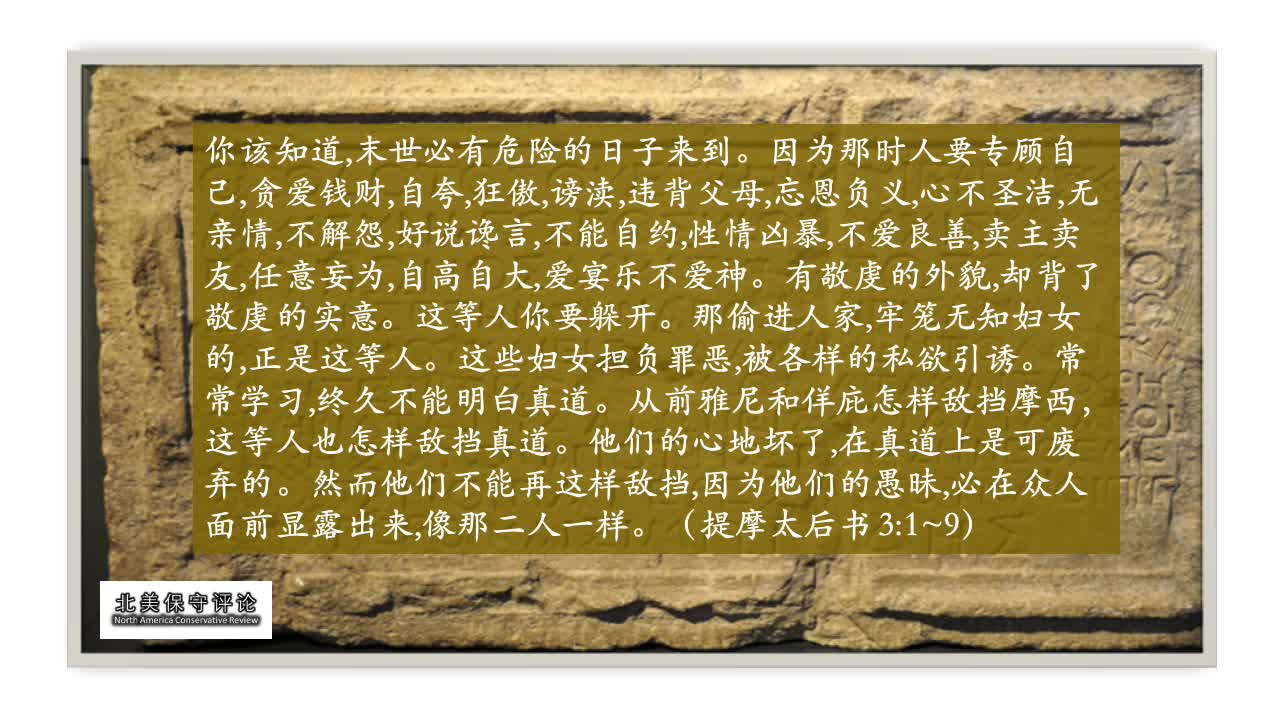 你该知道,末世必有危险的日子来到。因为那时人要专顾自
己,贪爱钱财,自夸,狂傲,谤渎,违背父母,忘恩负义,心不圣洁,无
亲情,不解怨,好说谗言,不能自约,性情凶暴,不爱良善,卖主卖
友,任意妄为,自高自大,爱宴乐不爱神。有敬虔的外貌,却背了
敬虔的实意。这等人你要躲开。那偷进人家,牢笼无知妇女
的,正是这等人。这些妇女担负罪恶,被各样的私欲引诱。常
常学习,终久不能明白真道。从前雅尼和佯庇怎样敌挡摩西,
这等人也怎样敌挡真道。他们的心地坏了,在真道上是可废
弃的。然而他们不能再这样敌挡,因为他们的愚昧,必在众人
面前显露出来,像那二人一样。（提摩太后书 3:1~9）
北美保守评论
North America Conservative Review